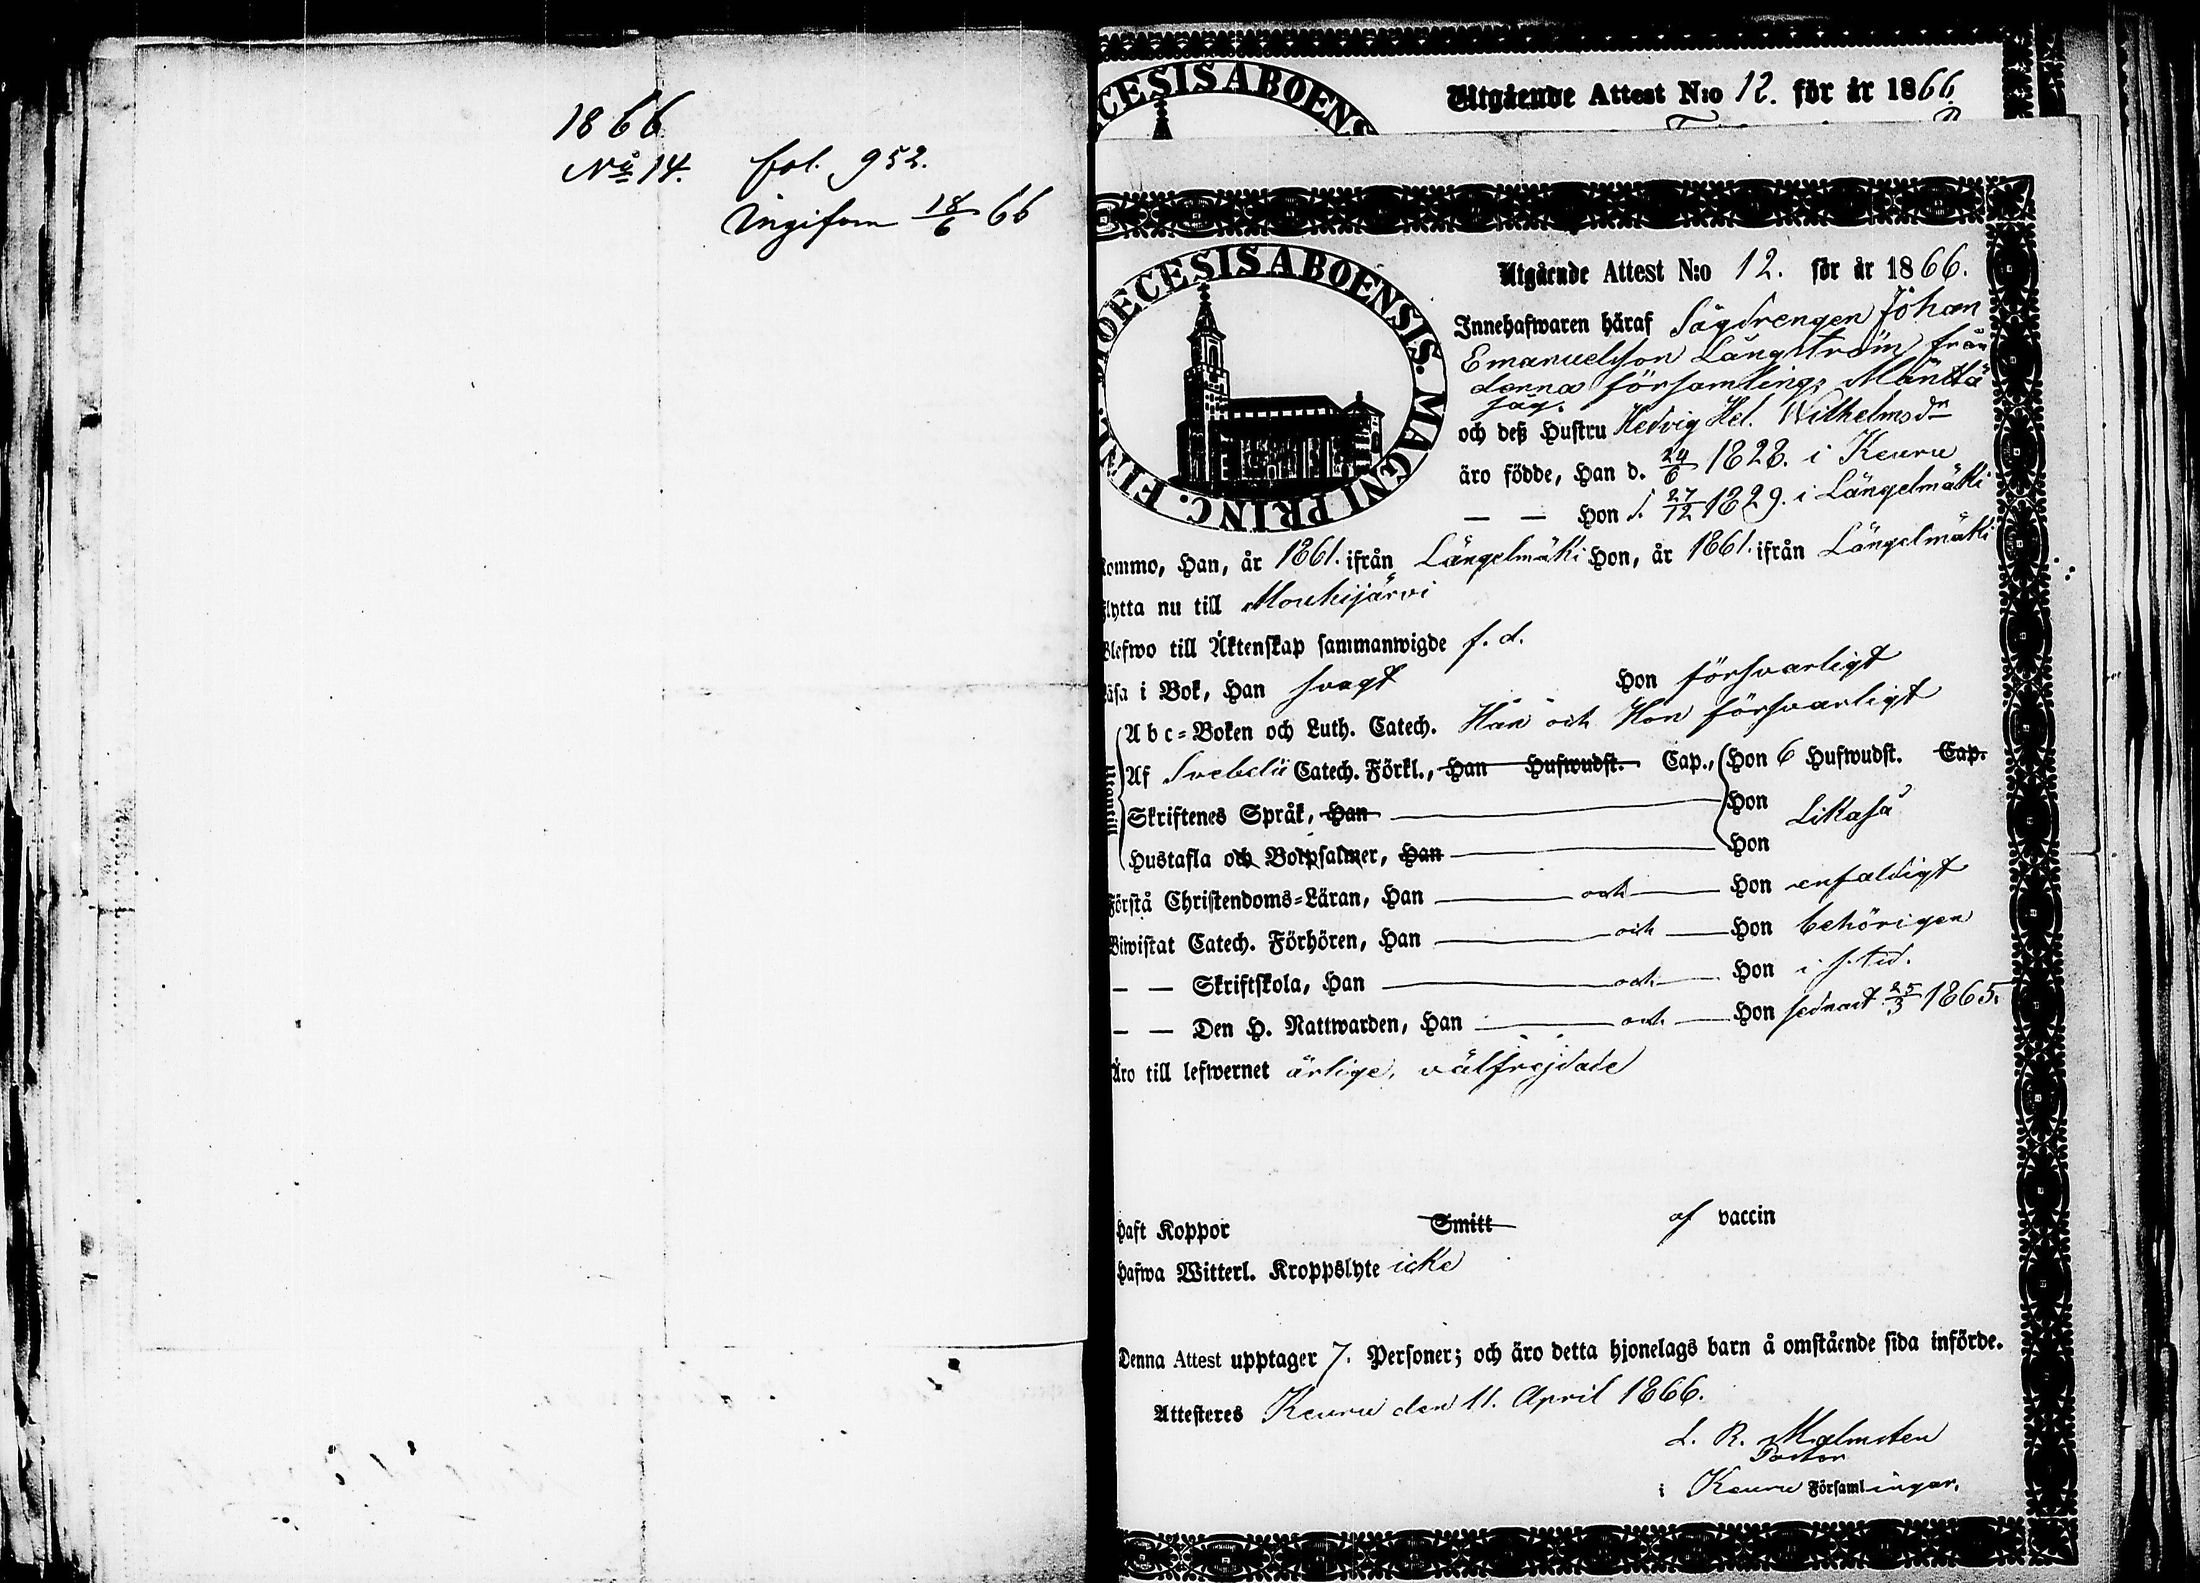 1866
No 14. fol. 952.
Ingifven 18/6 66
DIOECESIS ABOENSIS
Utgående Attest N:o 12. för år 1866
DIOECESIS ABOENSIS. MAGNI PRINC. FINL.
Utgående Attest N:o 12. för år 1866.
Innehafwaren häraf Sågdrengen Johan
Emanuelsson Långström från
denna församlings Mänttä
såg.
och deß Hustru Hedvig Hel. Wilhelmsdr
äro födde, Han d. 24/6 1828. i Keuru
— — Hon d. 27/12 1829. i Längelmäki
Kommo, Han, år 1861. ifrån Längelmäki Hon, år 1861. ifrån Längelmäki
Flytta nu till Mouhijärvi
Blefwo till Äktenskap sammanwigde f. d.
Läsa i Bok, Han svagt Hon försvarligt
Utantill
Abc-Boken och Luth. Catech. Han och Hon försvarligt
Af Svebelii Catech. Förkl., Han Hufwudst. Cap., Hon 6 Hufwudst. Cap.
Skriftenes Språk, Han — Hon Likaså
Hustafla och Botpsalmer, Han — Hon
Förstå Christendoms-Läran, Han — och — Hon enfaldigt
Biwistat Catech. Förhören, Han — och — Hon behörigen
— — Skriftskola, Han — och — Hon i s. tid.
— — Den H. Nattwarden, Han — och — Hon sednast 25/3 1865.
Äro till lefwernet ärlige, välfrejdade
Haft Koppor Smitt af vaccin
Hafwa Witterl. Kroppslyte icke
Denna Attest upptager 7. Personer; och äro detta hjonelags barn å omstående sida införde.
Attesteres Keuru den 11. April 1866.
L. R. Malmsten
Pastor
i Keuru Församlingar.